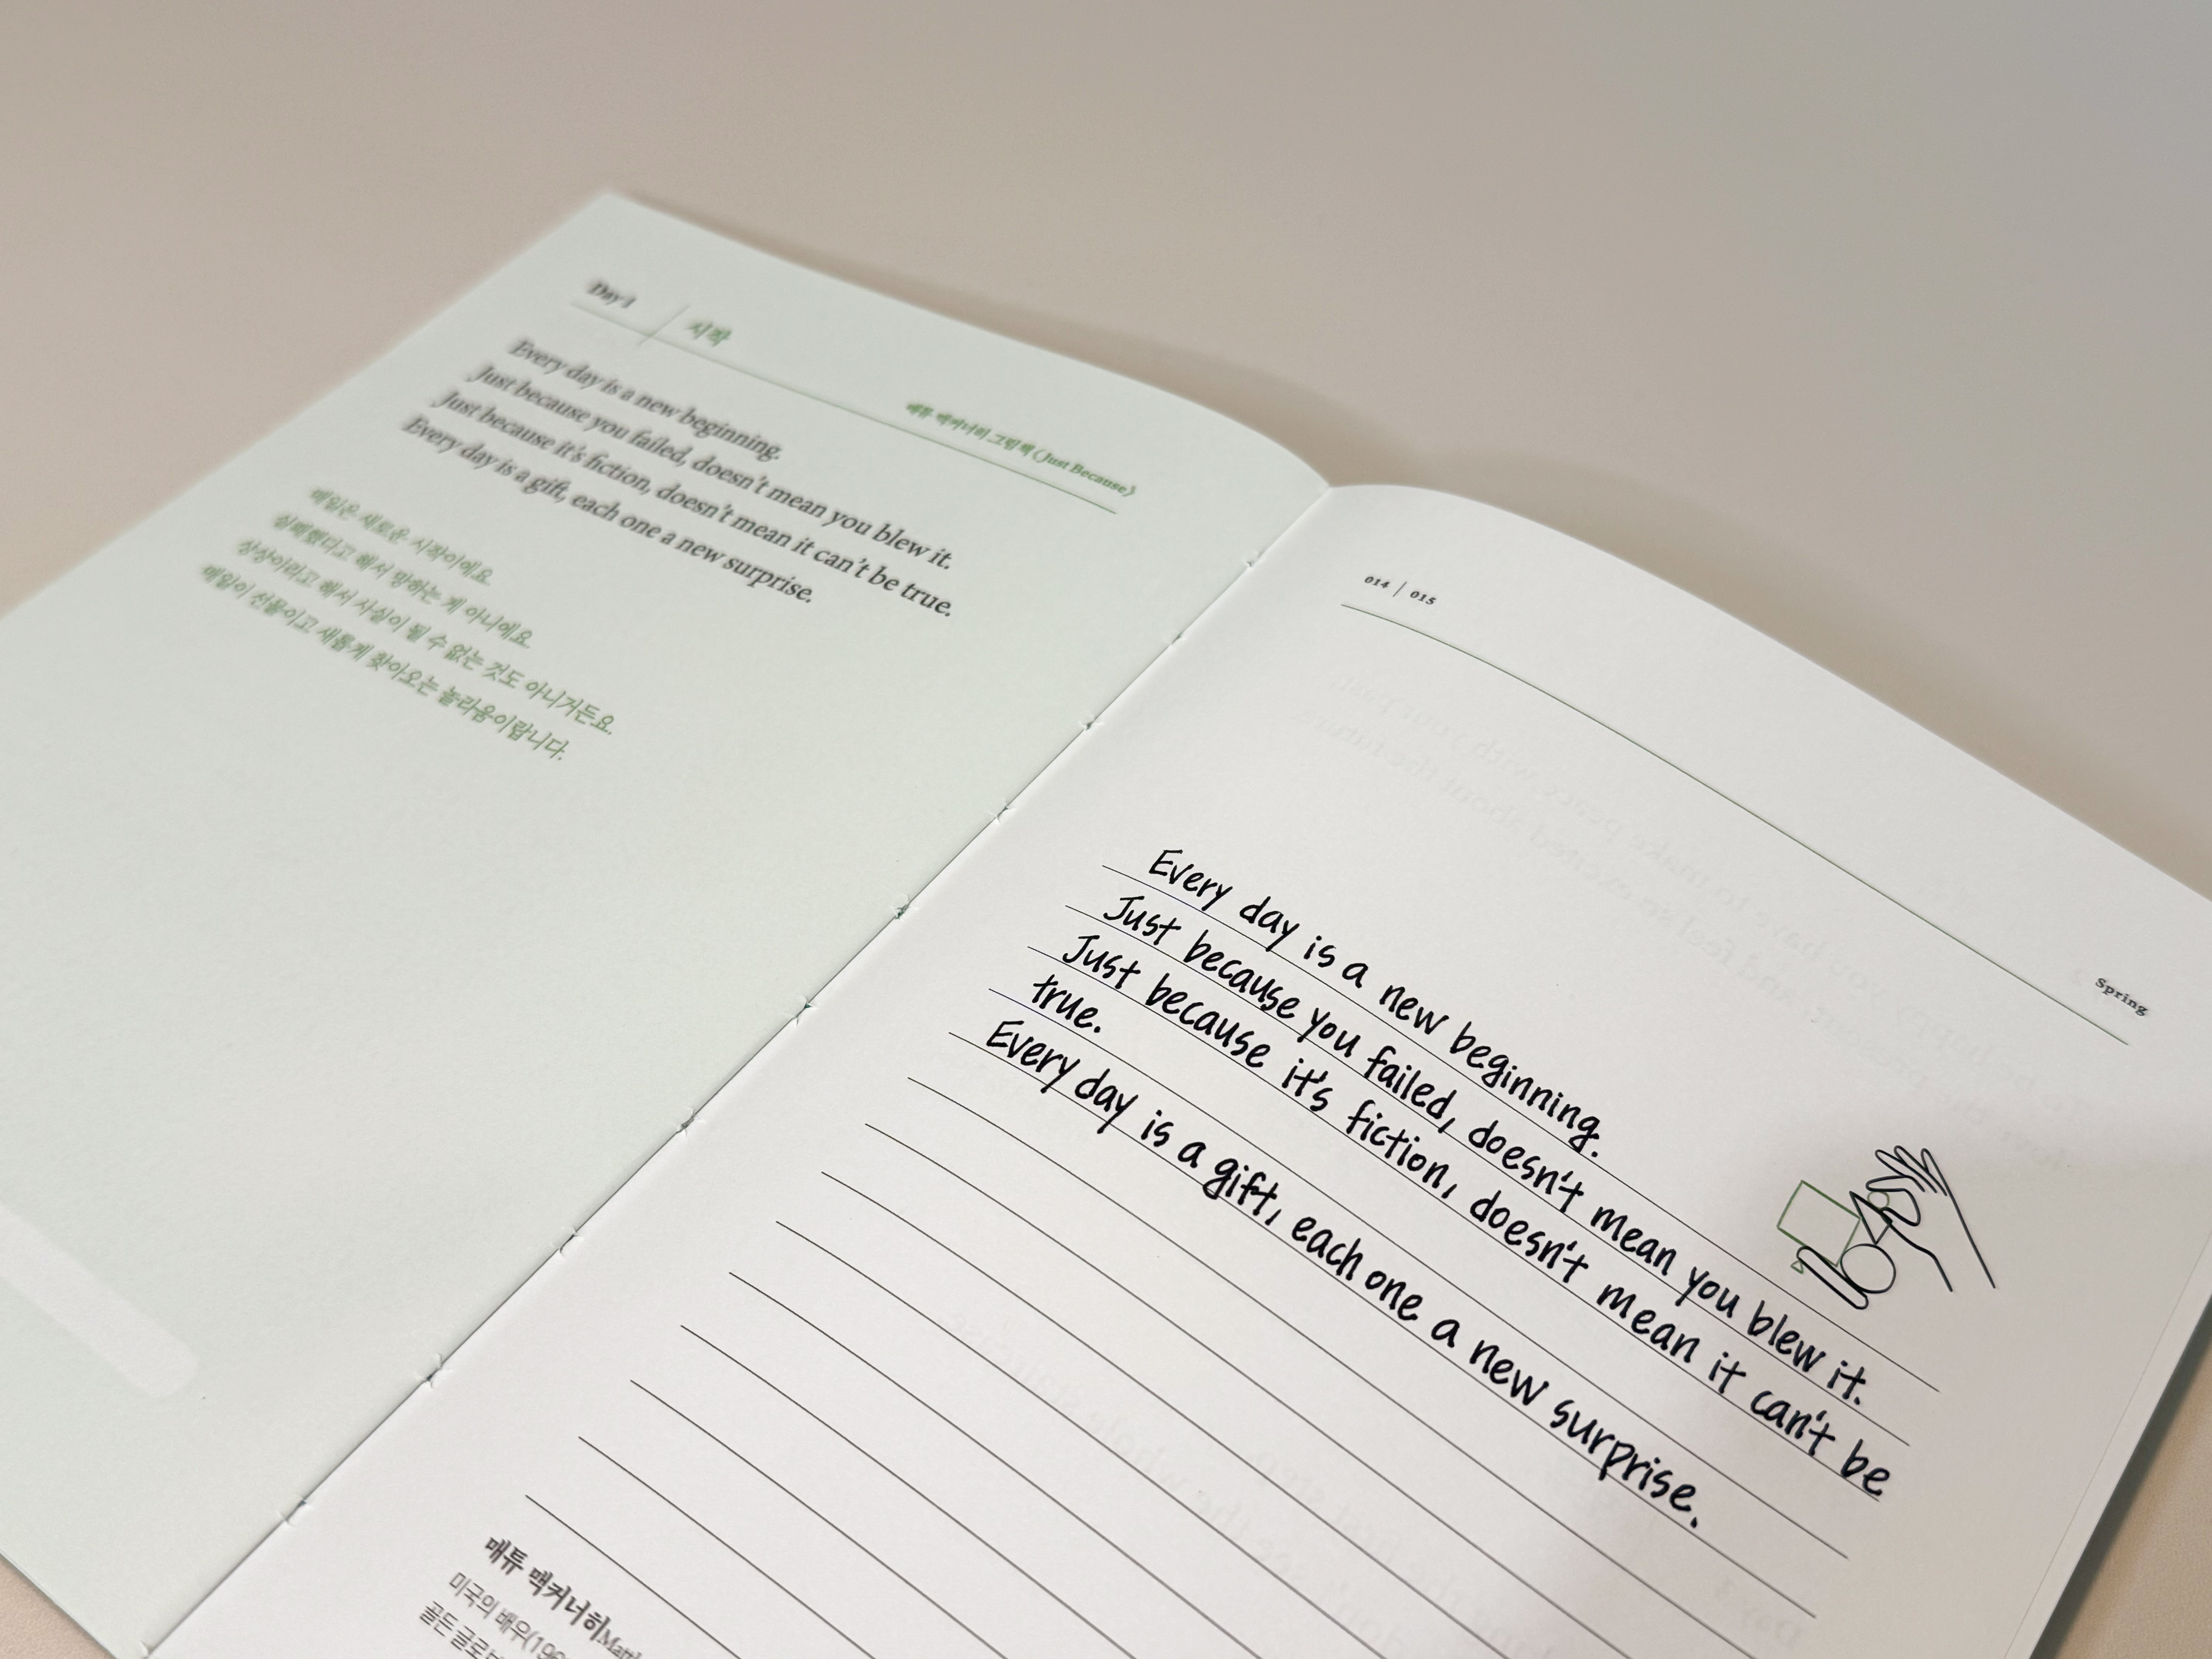 Day 1
시작
매튜 맥커너히 그림책 〈Just Because〉
Every day is a new beginning.
Just because you failed, doesn't mean you blew it.
Just because it's fiction, doesn't mean it can't be true.
Every day is a gift, each one a new surprise.
매일은 새로운 시작이에요.
실패했다고 해서 망하는 게 아니에요.
상상이라고 해서 사실이 될 수 없는 것도 아니거든요.
매일이 선물이고 새롭게 찾아오는 놀라움이랍니다.
014 | 015
Spring
Every day is a new beginning.
Just because you failed, doesn't mean you blew it.
Just because it's fiction, doesn't mean it can't be
true.
Every day is a gift, each one a new surprise.
매튜 맥커너히
미국의 배우